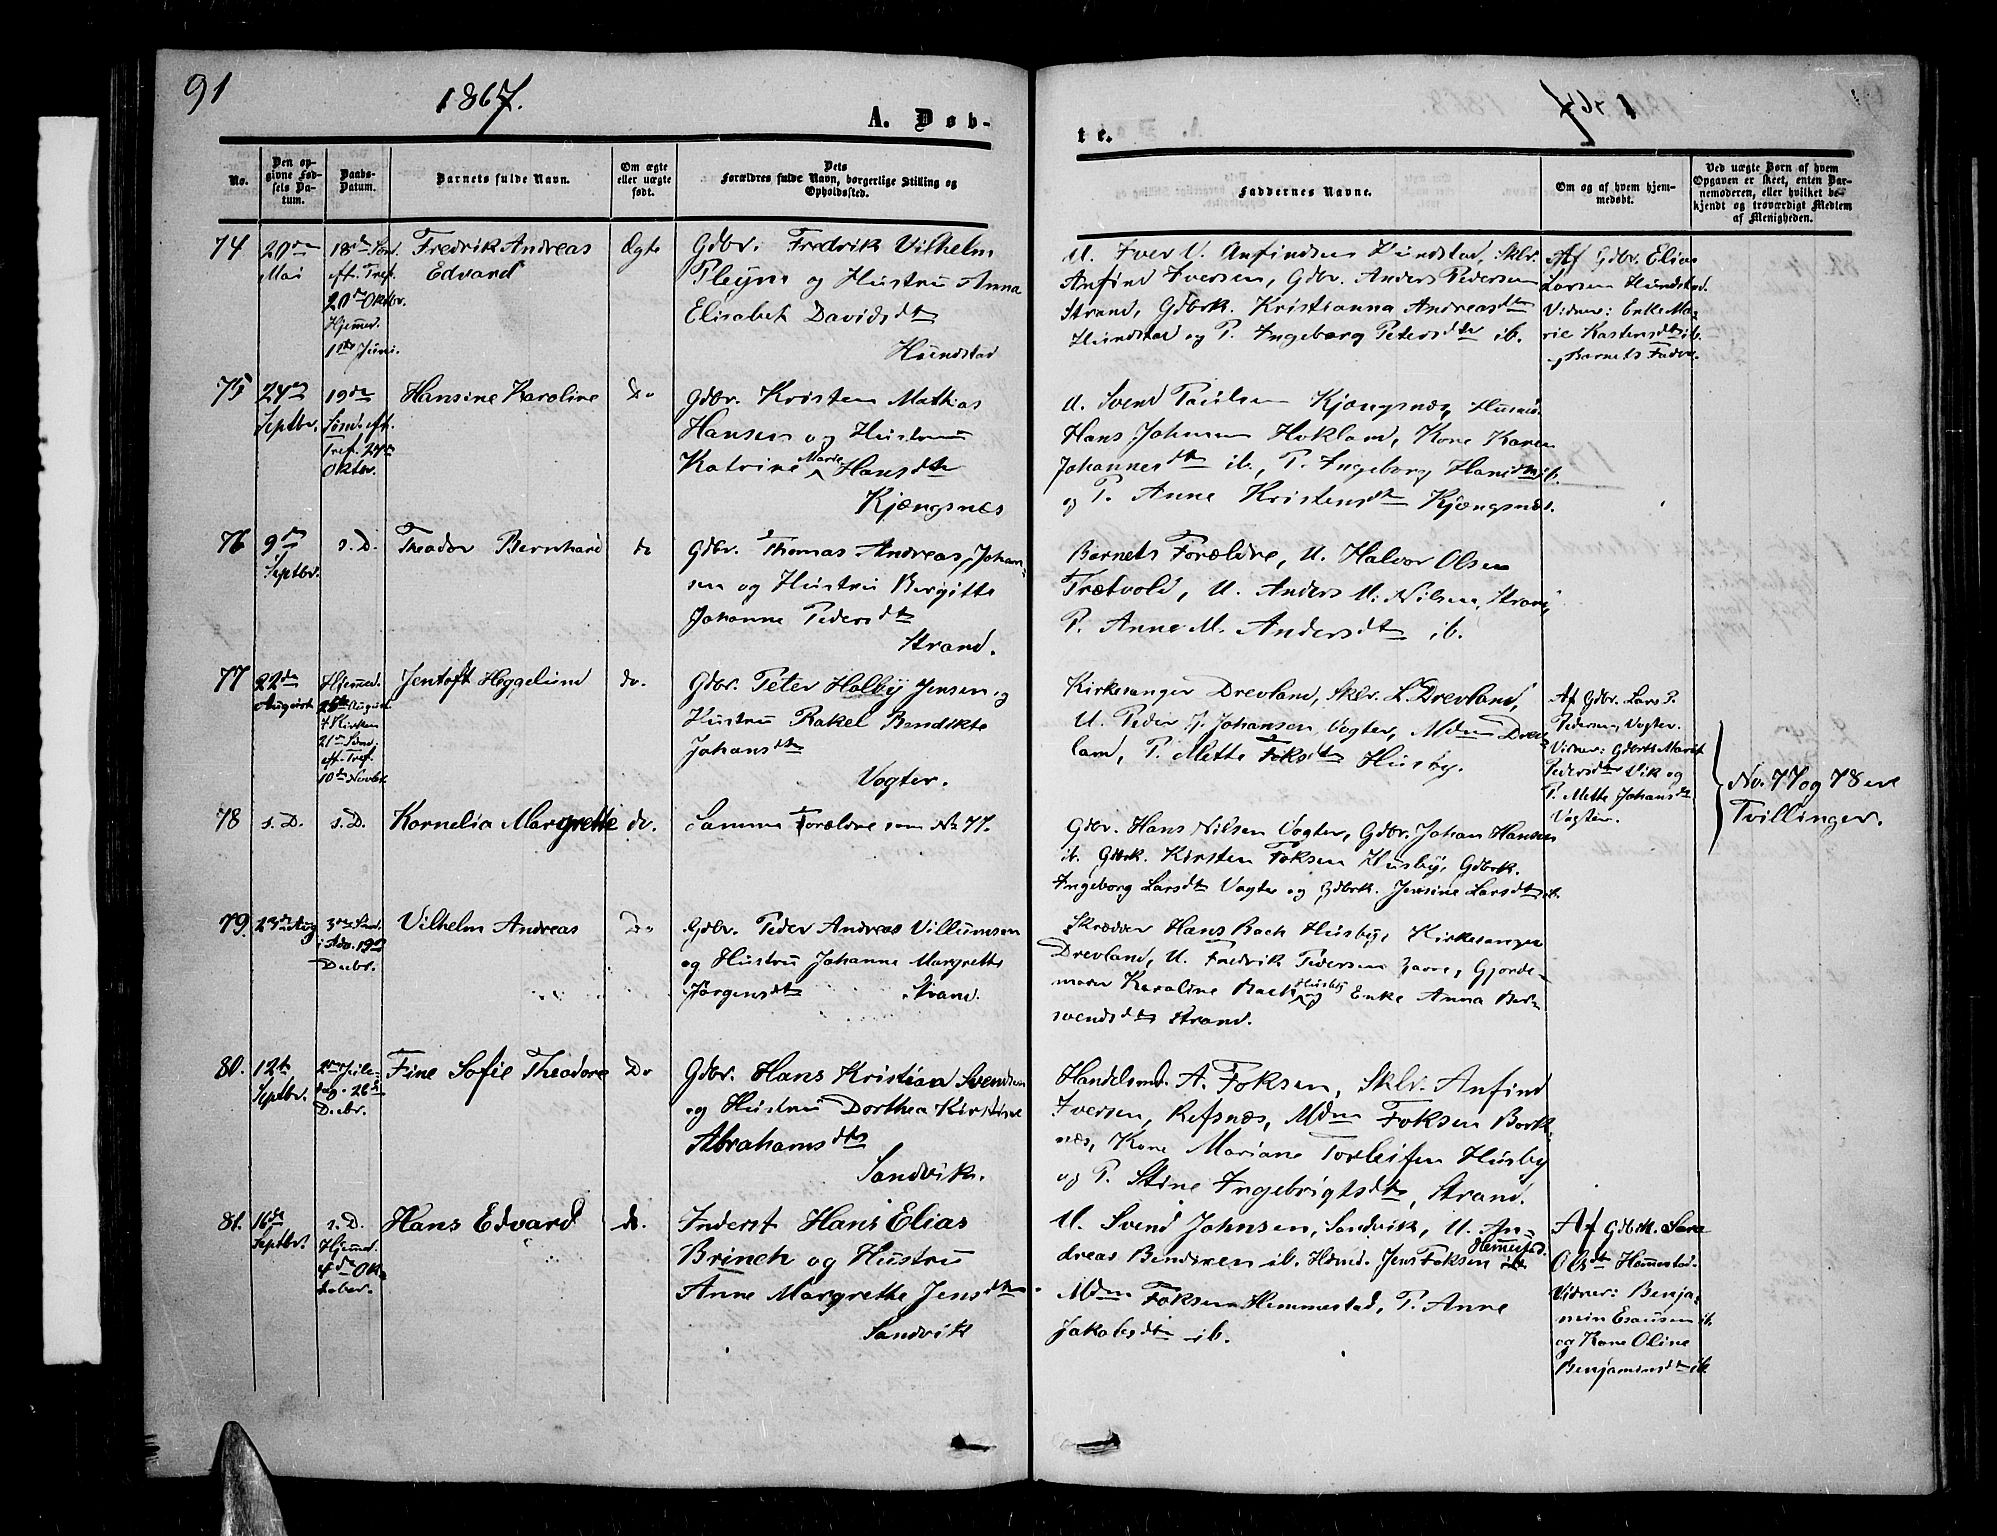 91
1867.
A. Døb-
te.
No.
Den op-
givne Fød-
sels Da-
tum.
Daabs-
Datum.
Barnets fulde Navn.
Om ægte
eller uægte
født.
Dets
Forældres fulde Navn, borgerlige Stilling og
Opholdssted.
Faddernes Navne.
Om og af hvem hjem-
medøbt.
Ved uægte Børn af hvem
Opgaven er skeet, enten Bar-
nemoderen, eller hvilket be-
kjendt og troværdigt Medlem
af Menigheden.
74
20de
Mai
18de Sønd.
eft. Tref.
20de Oktbr.
Hjemmed.
1ste Juni.
Fredrik Andreas
Edvard
Ægte
Gdbr. Fredrik Vilhelm
Pleym og Hustru Anna
Elisabet Davidsdtr
Hundstad
U. Iver U. Anfindsen Hundstad, Sklr.
Anfind Iversen, Gdbr. Anders Pedersen
Strand, Gdbrk. Kristianna Andreasdtr
Hundstad og P. Ingeborg Petersdtr ib.
Af Gdbr. Elias
Larsen Hundstad.
Vidner: Enke Ma-
rie Karstensdtr ib.
og Barnets Fader.
75
24de
Septbr.
19de
Sønd. eft.
Tref. 27de
Oktbr.
Hansine Karoline
do
Gdbr. Kristen Mathias
Hansen og Hustru
Katrine Marie Hansdtr
Kjængsnes
U. Svend Paulsen Kjængsnes, Husmd.
Hans Johnsen Hokland, Kone Karen
Johannesdtr ib., P. Ingeborg Hansdtr ib.
og P. Anne Kristensdtr Kjængsnes.
76
9de
Septbr.
s. D.
Theodor Bernhard
do
Gdbr. Thomas Andreas Johan-
sen og Hustru Bergitte
Johanna Pedersdtr
Strand.
Barnets Forældre, U. Halvor Olsen
Trætvold, U. Anders M. Nilsen, Strand,
P. Anne M. Andersdtr ib.
77
22de
August
Hjemmed.
25de August
i Kirken
21de Sønd.
eft. Tref.
10de Novbr.
Jentoft Heggelund
do.
Gdbr. Peter Holby Jensen og
Hustru Rakel Bendikte
Johansdtr
Vogter.
Kirkesanger Drevland, Sklr. L. Drevland,
U. Peder J. Johansen Vogter, Mdm Drev-
land, P. Mette Foksdtr Husby.
Af Gdbr. Lars P.
Pedersen, Vogter.
Vidner: Gdbrk Marit
Pedersdtr Vik og
P. Mette Johansdtr
Vogter.
No. 77 og 78 ere
Tvillinger.
78
s. D.
s. D.
Kornelia Margrethe
do.
Samme Forældre som No 77.
Gdbr. Hans Nilsen Vogter, Gdbr. Johan Hansen
ib. Gdbrk. Kirsten Foksen Husby, Gdbrk.
Ingeborg Larsdtr Vogter og Gdbrk. Jensine Larsdtr ib.
79.
23de Aug
3die Sønd.
i Adv. 15de
Decbr.
Vilhelm Andreas
Do
Gdbr. Peder Andreas Villumsen
og Hustru Johanne Margrethe
Jørgensdtr Strand.
Skrædder Hans Bach Husby, Kirkesanger
Drevland, U. Fredrik Pedersen Faare, Gjorde-
moder Karoline Bach Husby og Enke Anna Ber-
svendsdtr Strand.
80.
12te
Septbr.
2den Jule-
dag. 26de
Decbr.
Fine Sofie Theodore
Do
Gdbr. Hans Kristian Svendsen
og Hustru Dorthea Kirstine
Abrahamsdtr
Sandvik.
Handelsmd. A. Foksen, Sklr. Anfind
Iversen, Refsnæs, Mdm Foksen Bork-
næs, Kone Mariane Torleifsen Husby
og P. Stine Ingebrigtsdtr, Strand.
81.
16de
Septbr.
s. D.
Hjemmed.
4de Ok-
tober.
Hans Edvard
do.
Inderst Hans Elias
Brinch og Hustru
Anne Margrethe Jensdtr
Sandvik
U. Svend Johnsen, Sandvik, U. An-
dreas Bendixen ib. Hsmd. Jens Foksen Hemmestad.
Mdm Foksen Hemmestad, P. Anne
Jakobsdtr ib.
Af Gdbrk. Sara
Olsdtr Hemmestad.
Vidner: Benja-
min Esausen ib.
og Kone Oline
Benjaminsdtr ib.